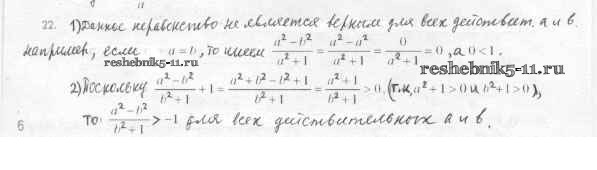 22. 1) Данное неравенство не является верным для всех действит. a и b.
например, если a = b, то имеем (a² − b²)/(a² + 1) = (a² − a²)/(a² + 1) = 0/(a² + 1) = 0, а 0 < 1.
reshebnik5-11.ru
reshebnik5-11.ru
2) Поскольку (a² − b²)/(b² + 1) + 1 = (a² + b² − b² + 1)/(b² + 1) = (a² + 1)/(b² + 1) > 0. (т.к. a² + 1 > 0 и b² + 1 > 0),
то (a² − b²)/(b² + 1) > −1 для всех действительных a и b.
6